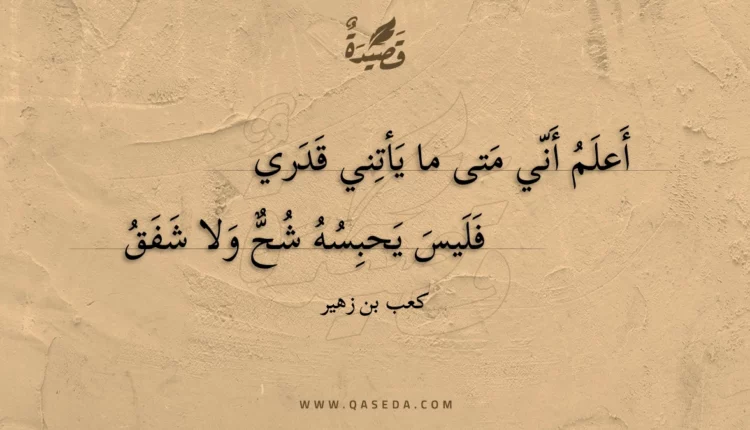 قَصِيْدَةٌ
أَعلَمُ أَنّي مَتى ما يَأتِني قَدَري
فَلَيسَ يَحبِسُهُ شُحٌّ وَلا شَفَقُ
كعب بن زهير
WWW.QASEDA.COM